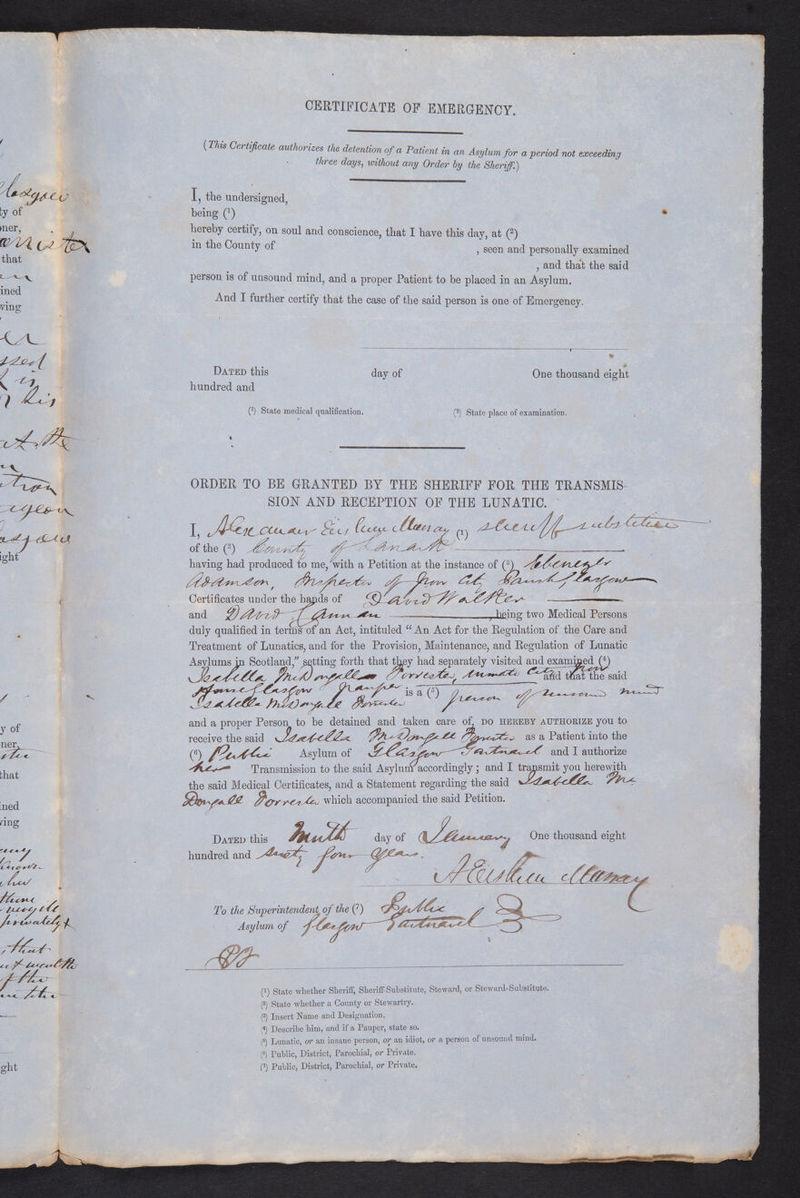 CERTIFICATE OF EMERGENCY.
(This Certificate authorizes the detention of a Patient in an Asylum for a period not exceeding
three days, without any Order by the Sheriff.)
I, the undersigned,
being (¹)
hereby certify, on soul and conscience, that I have this day, at (²)
in the County of , seen and personally examined
, and that the said
person is of unsound mind, and a proper Patient to be placed in an Asylum.
And I further certify that the case of the said person is one of Emergency.
DATED this day of One thousand eight
hundred and
(¹) State medical qualification. (²) State place of examination.
ORDER TO BE GRANTED BY THE SHERIFF FOR THE TRANSMIS-
SION AND RECEPTION OF THE LUNATIC.
I, Alexander Erskine Murray (¹) Sheriff Substitute
of the (²) County of Lanark
having had produced to me, with a Petition at the instance of (³) Ebenezer
Adamson, Inspector of Poor City Parish Glasgow
Certificates under the hands of David Walker
and David Cannan being two Medical Persons
duly qualified in terms of an Act, intituled "An Act for the Regulation of the Care and
Treatment of Lunatics, and for the Provision, Maintenance, and Regulation of Lunatic
Asylums in Scotland," setting forth that they had separately visited and examined (⁴)
Isabella McDougall Forrester, Inmate City Poor
House Glasgow Pauper and that the said
Isabella McDougall Forrester is a (⁵) person of unsound mind
and a proper Person to be detained and taken care of, DO HEREBY AUTHORIZE you to
receive the said Isabella McDougall Forrester as a Patient into the
(⁶) Public Asylum of Glasgow Gartnavel and I authorize
her Transmission to the said Asylum accordingly; and I transmit you herewith
the said Medical Certificates, and a Statement regarding the said Isabella Mc
Dougall Forrester which accompanied the said Petition.
DATED this Ninth day of January One thousand eight
hundred and Sixty four years.
A Erskine Murray
To the Superintendent of the (⁷) Public
Asylum of Glasgow Gartnavel
(¹) State whether Sheriff, Sheriff-Substitute, Steward, or Steward-Substitute.
(²) State whether a County or Stewartry.
(³) Insert Name and Designation.
(⁴) Describe him, and if a Pauper, state so.
(⁵) Lunatic, or an insane person, or an idiot, or a person of unsound mind.
(⁶) Public, District, Parochial, or Private.
(⁷) Public, District, Parochial, or Private.